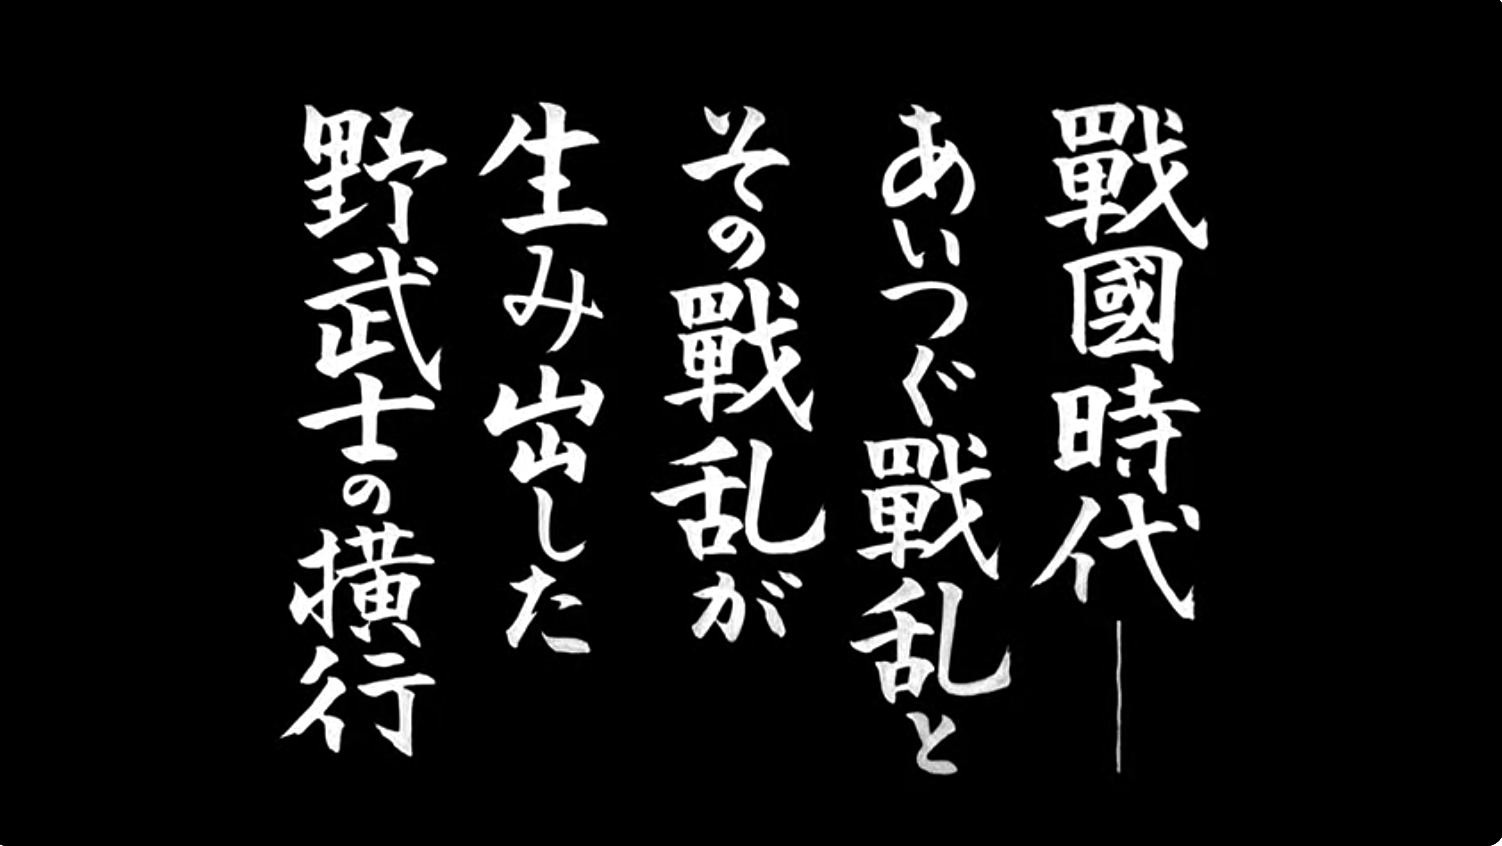 戰國時代―
あいつぐ戰乱と
その戰乱が
生み出した
野武士の横行